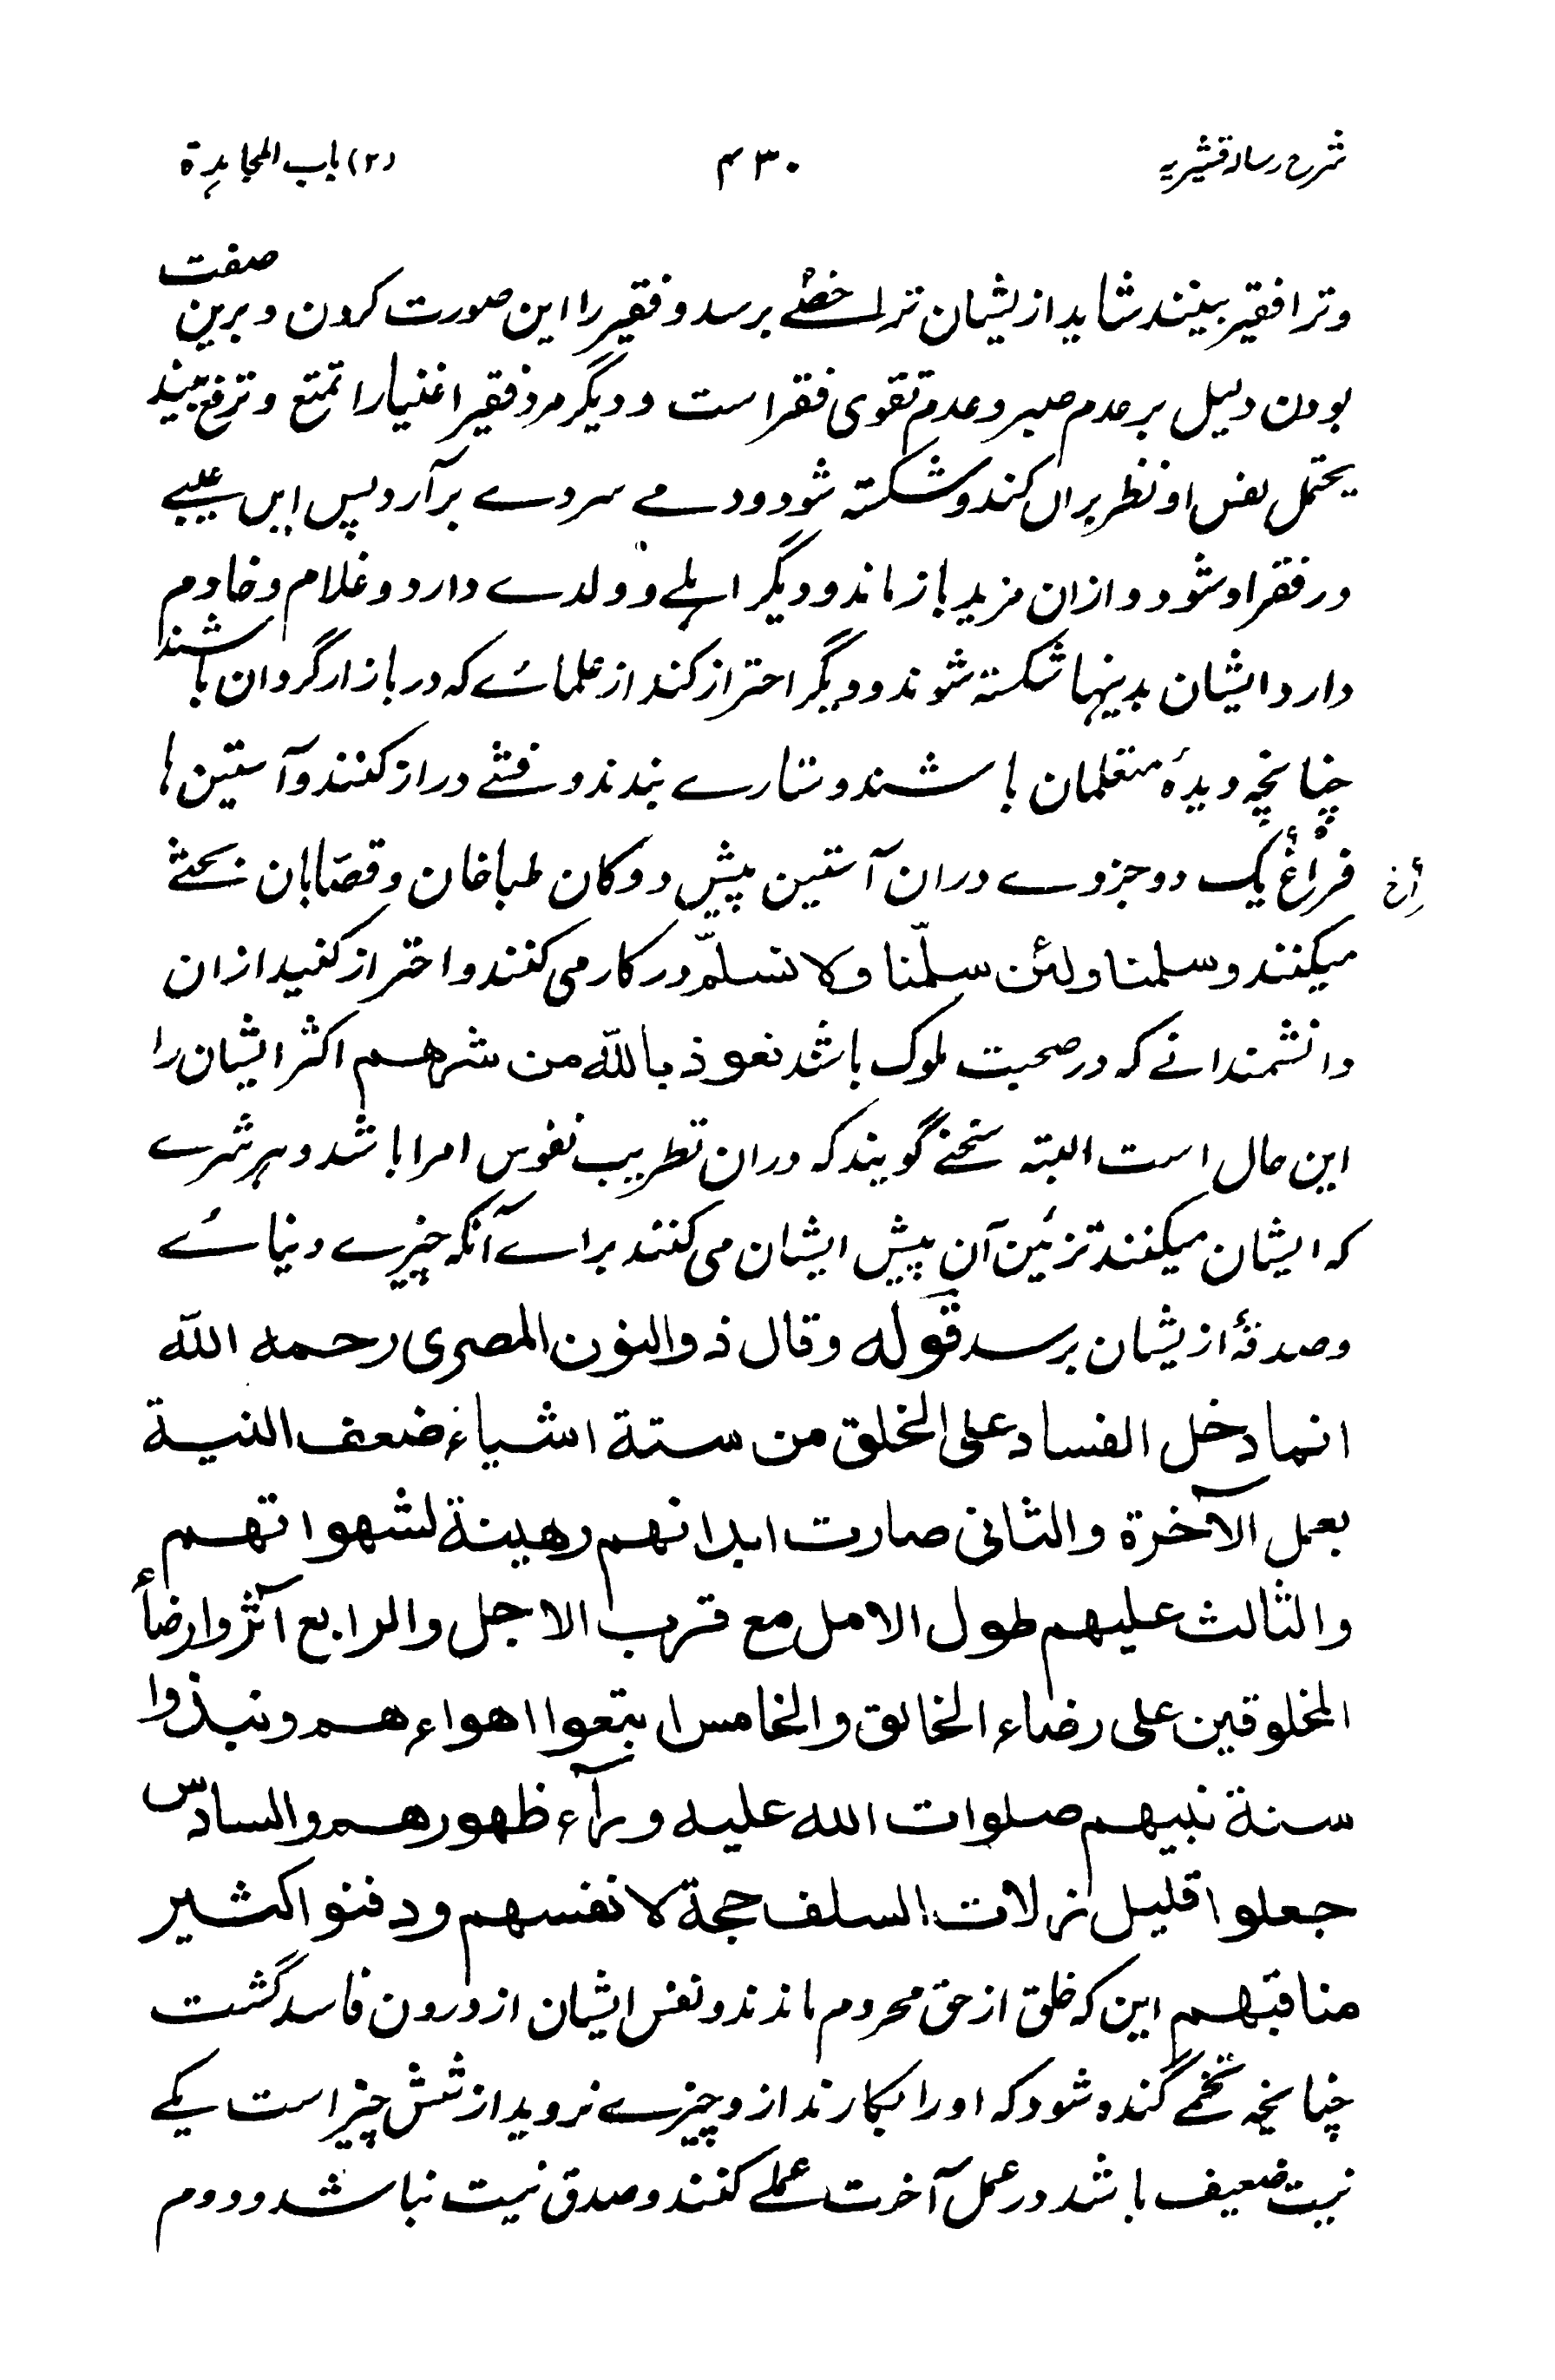 شرح رسالہ قشیریہ
۴۳۰
(۲) باب المجاہدة
وترا فقیر بینند شاید از یشان ترا خطے برسد و فقیر را این صورت کردن و برین صفت
بودن دلیل بر عدم صبر و عدم تقوی فقراست و دیگر مرد فقیر اغنیا را تمتع و ترفع بیند
یحتمل نفس او نظر بران کند و شکستہ شود و دمے سردے برآرد پس این عیبے
در فقر او شود و ازان مزید باز ماند و دیگر اہلے و ولدے دارد و غلام و خادم
دارد ایشان بدینہا شکستہ شوند و دیگر احتراز کند از علمائے کہ در بازار گردان باشند
چنانچہ دیدۂ متعلمان باشند و ستارے بندند و فشے دراز کنند و آستین ہا
فراغ یک دو جزوے دران آستین پیش دوکان طباخان و قصابان بحثے
میکنند و سلمنا ولئن سلّمنا ولا نسلّم در کار می کنند و احتراز کنید ازان
دانشمندانے کہ در صحبت ملوک باشد نعوذ باللہ من شرهم اکثر ایشان را
این حال است البتہ سخنے گویند کہ دران تطریب نفوس امرا باشد و ہر شرے
کہ ایشان میکنند تزئین آن پیش ایشان می کنند براے آنکہ چیزے دنیائے
وصدقۂ از یشان برسد قوله وقال ذوالنون المصری رحمه الله
انما دخل الفساد علی الخلق من ستة اشیاء ضعف النیة
بعمل الآخرة والثانی صارت ابدانهم رهینة لشهواتهم
والثالث علیهم طول الامل مع قرب الاجل والرابع آثروا رضاء
المخلوقین علی رضاء الخالق والخامس اتبعوا اهواءهم ونبذوا
سنة نبیهم صلوات الله علیه ورآء ظهورهم والسادس
جعلوا قلیل زلات السلف حجة لانفسهم ودفنوا کثیر
مناقبهم این کہ خلق از حق محروم ماندند و نفس ایشان از درون فاسد گشت
چنانچہ تخمے گندہ شود کہ او را بکارند ازو چیزے نروید از شش چیز است یکے
نیت ضعیف باشد در عمل آخرت عملے کنند و صدق نیت نباشد و دوم